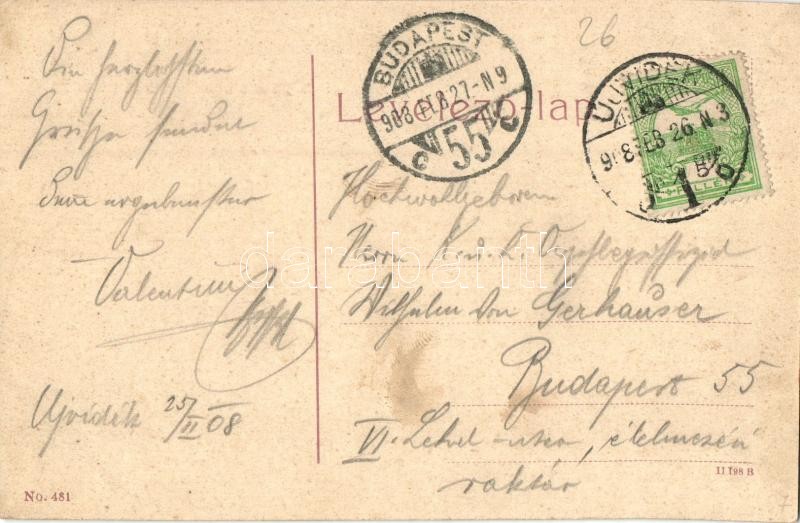 26
BUDAPEST
908 FEB 27.-N 9
55
UJVIDÉK
908 FEB 26-N 3
1
FILLÉR
Levelező-lap
Die herzlichsten
Grüße sendet
Ihr ergebenster
Valentin
Ujvidék 25/II 08
Hochwohlgeboren
Herrn K. u. K.
Wilhelm von Gerhauser
Budapest 55
VI. Lehel-utca, élelmezési
raktár
darabanth
No. 481
II 198 B
7